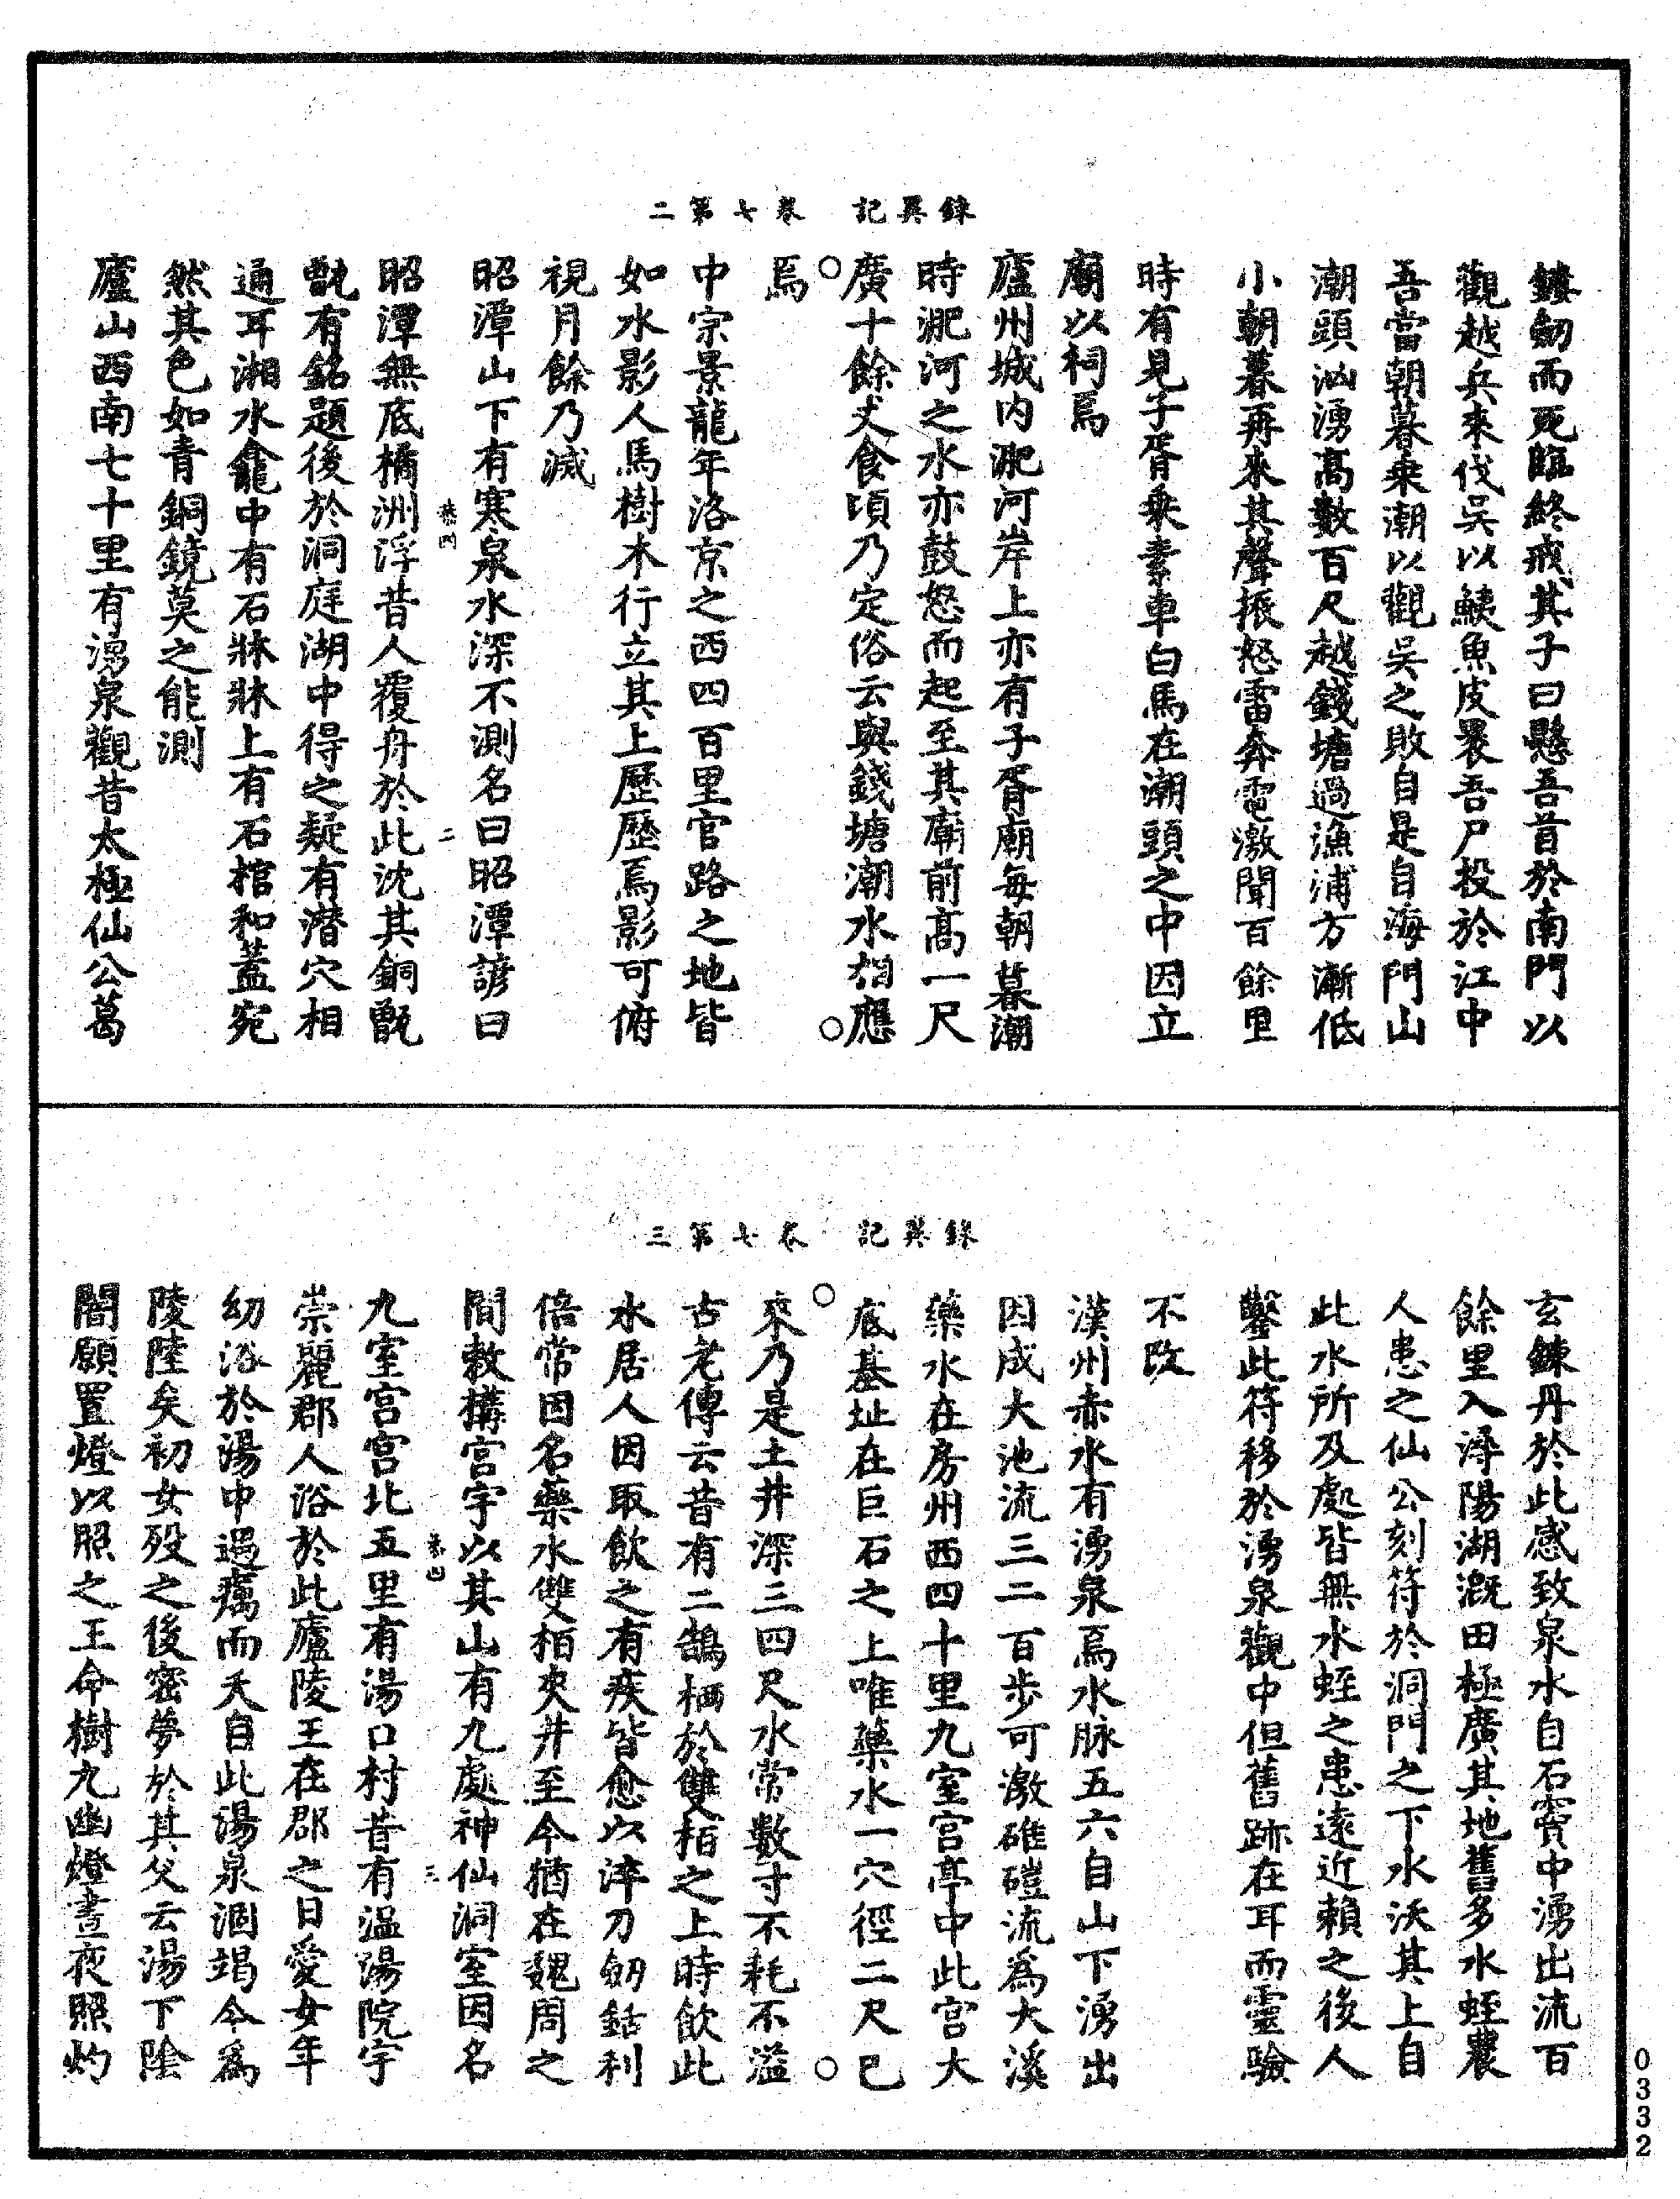 錄異記　卷七第二
鏤劒而死臨終戒其子曰懸吾首於南門以
觀越兵來伐吳以鮧魚皮褁吾尸投於江中
吾當朝暮乘潮以觀吳之敗自是自海門山
潮頭汹湧高數百尺越錢塘過漁浦方漸低
小朝暮再來其聲振怒雷奔電激聞百餘里
時有見子胥乗素車白馬在潮頭之中因立
廟以祠焉
廬州城内淝河岸上亦有子胥廟每朝暮潮
時淝河之水亦鼓怒而起至其廟前高一尺
廣十餘丈食頃乃定俗云與錢塘潮水相應
焉
中宗景龍年洛京之西四百里官路之地皆
如水影人馬樹木行立其上歷歷焉影可俯
視月餘乃滅
昭潭山下有寒泉水深不測名曰昭潭諺曰
昭潭無底橘洲浮昔人覆舟於此沈其銅甑
甑有銘題後於洞庭湖中得之疑有潛穴相
通耳湘水龕中有石牀牀上有石棺和蓋宛
然其色如青銅鏡莫之能測
廬山西南七十里有湧泉觀昔太極仙公葛
二
錄異記　卷七第三
玄鍊丹於此感致泉水自石竇中湧出流百
餘里入潯陽湖漑田極廣其地舊多水蛭農
人患之仙公刻符於洞門之下水沃其上自
此水所及處皆無水蛭之患遠近賴之後人
鑿此符移於湧泉觀中但舊跡在耳而靈驗
不改
漢州赤水有湧泉焉水脉五六自山下湧出
因成大池流三二百步可激碓磑流爲大溪
藥水在房州西四十里九室宫亭中此宫大
底基址在巨石之上唯藥水一穴徑二尺已
來乃是土井深三四尺水常數寸不耗不溢
古老傳云昔有二鵠栖於雙栢之上時飲此
水居人因取飲之有疾皆愈以淬刀劒銛利
倍常因名藥水雙栢夾井至今猶在魏周之
間敕構宫宇以其山有九處神仙洞室因名
九室宫宫北五里有湯口村昔有温湯院宇
崇麗郡人浴於此廬陵王在郡之日愛女年
幼浴於湯中遇癘而夭自此湯泉涸竭今爲
陵陸矣初女殁之後密夢於其父云湯下陰
闇願置燈以照之王命樹九幽燈晝夜照灼
三
0332